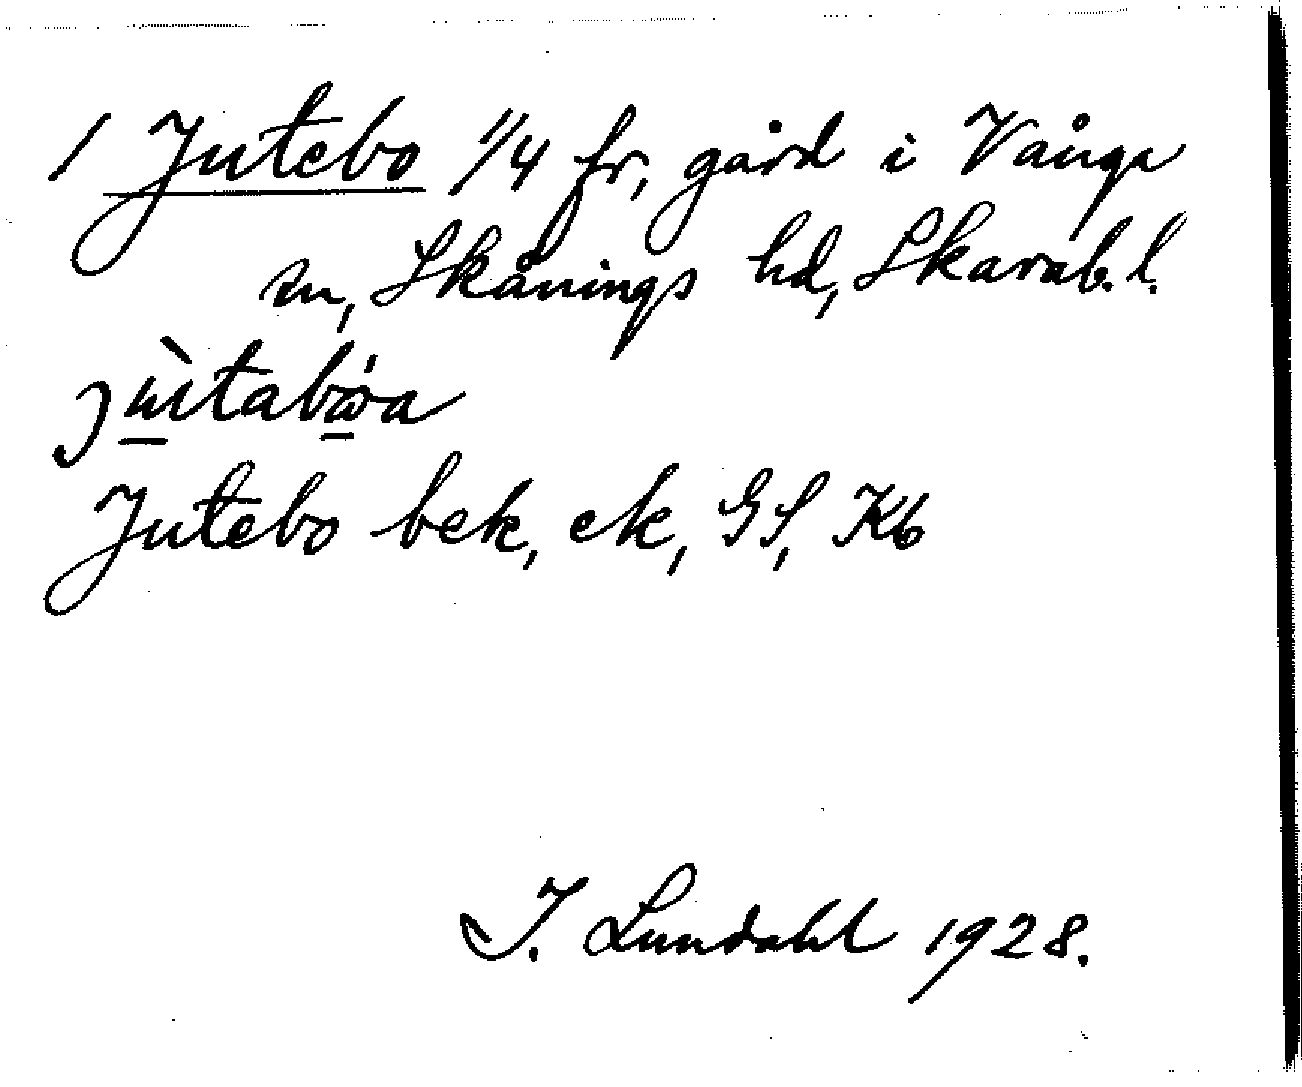 1 Jutebo 1/4 fr, gård i Vånga
sn, Skånings hd, Skarab. l.
jùtabǿa
Jutebo bek, ek, GS, Kb
I. Lundahl 1928.